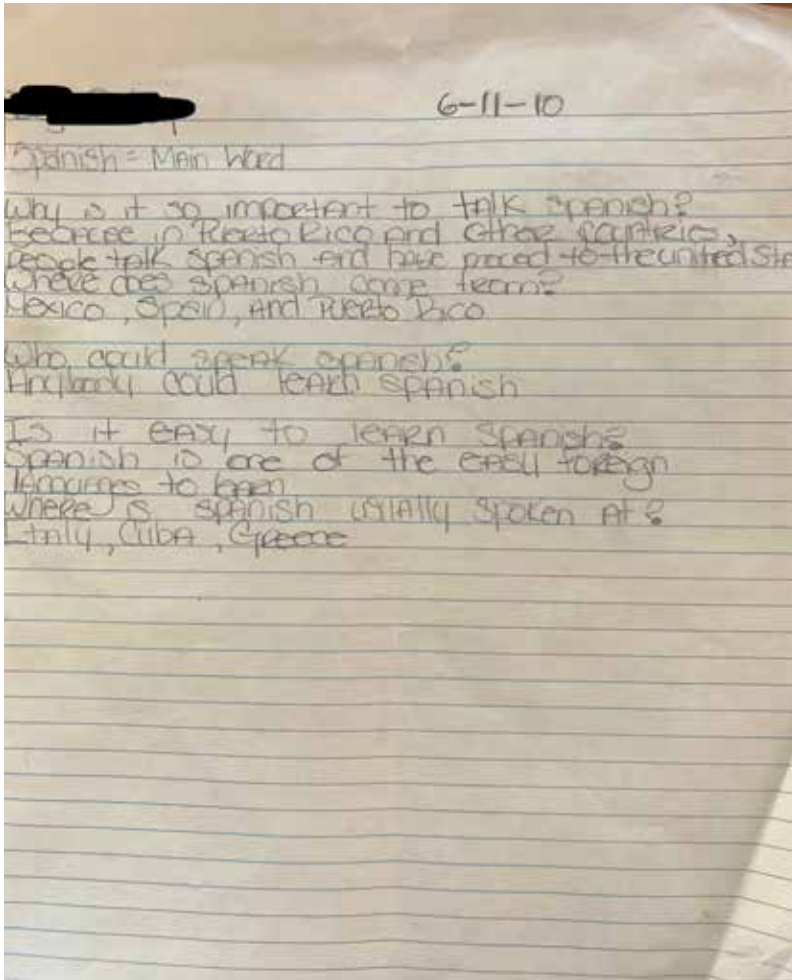 6-11-10
Spanish = Main Word
Why is it so important to talk spanish?
Becacee in Pkerto Rico and other countries,
people talk spanish and have moced to the united Sta
Where does spanish come from?
Mexico, Spain, And Puerto Rico
Who could speak spanish?
Anybody could learn spanish
Is it easy to learn Spanish?
Spanish is one of the easy foreign
languages to learn
Where is spanish usually spoken At?
Italy, Cuba, Greece